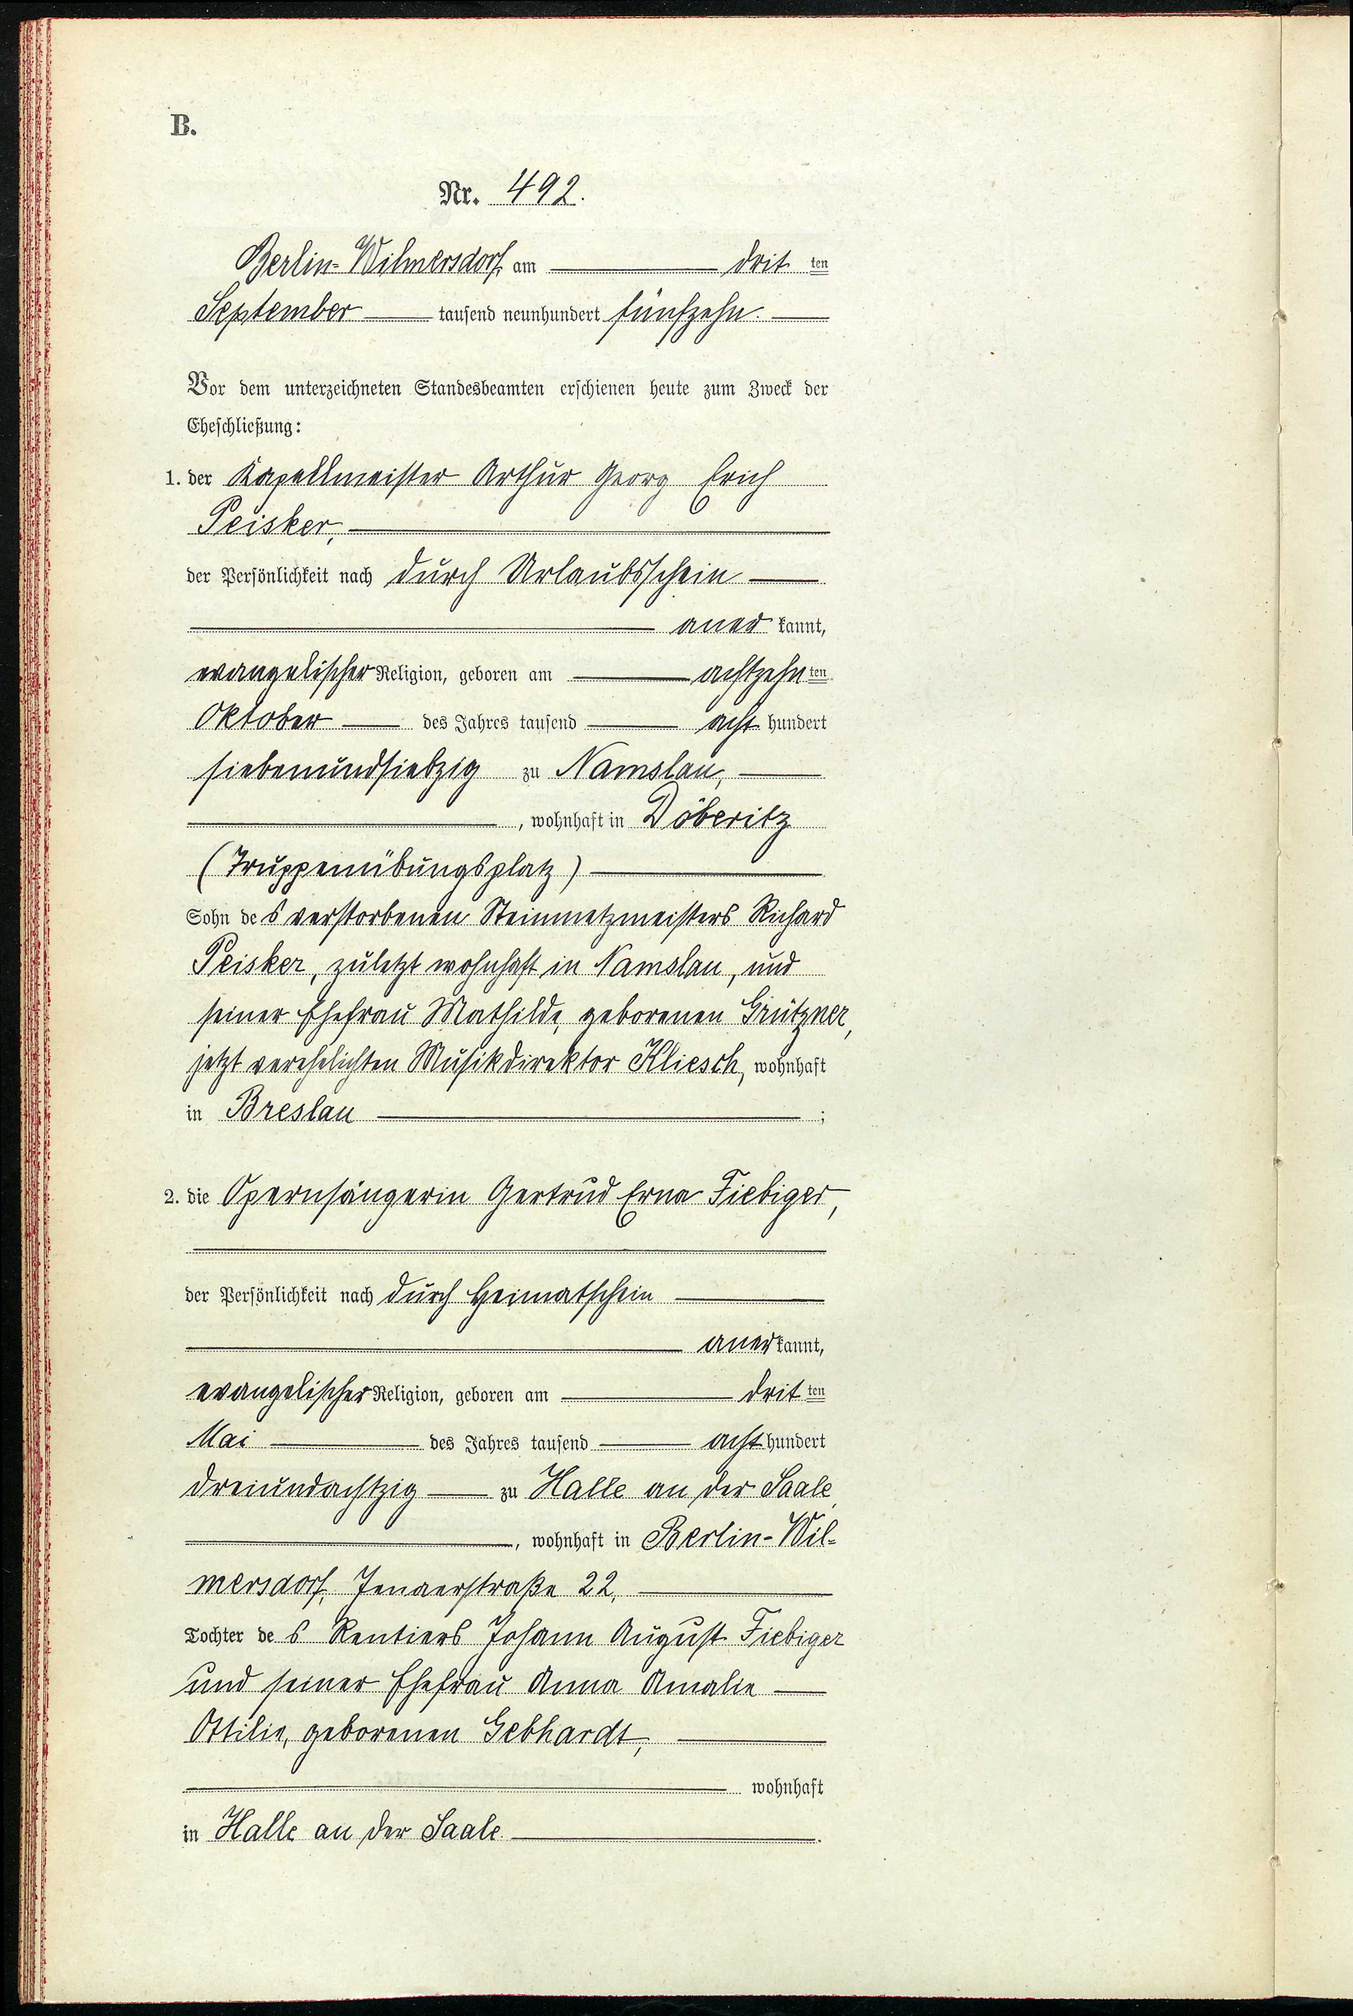 B.
Nr. 492.
Berlin-Wilmersdorf, am drit ten
September tausend neunhundert fünfzehn.
Vor dem unterzeichneten Standesbeamten erschienen heute zum Zweck der
Eheschließung:
1. der Kapellmeister Arthur Georg Erich
Peisker,
der Persönlichkeit nach durch Urlaubsschein
aner kannt,
evangelischer Religion, geboren am achtzehn ten
Oktober des Jahres tausend acht hundert
siebenundsiebzig zu Namslau,
, wohnhaft in Döberitz
(Truppenübungsplatz)
Sohn de s verstorbenen Steinmetzmeisters Richard
Peisker, zuletzt wohnhaft in Namslau, und
seiner Ehefrau Mathilde, geborenen Grützner,
jetzt verehelichten Musikdirektor Kliesch, wohnhaft
in Breslau ;
2. die Opernsängerin Gertrud Erna Fiebiger,
der Persönlichkeit nach durch Heimatschein
aner kannt,
evangelischer Religion, geboren am drit ten
Mai des Jahres tausend acht hundert
dreiundachtzig zu Halle an der Saale,
, wohnhaft in Berlin-Wil-
mersdorf, Jenaerstraße 22,
Tochter de s Rentiers Johann August Fiebiger
und seiner Ehefrau Anna Amalie
Ottilie, geborenen Gebhardt,
wohnhaft
in Halle an der Saale .